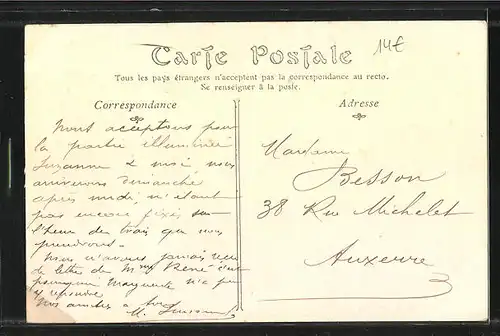 14€
Carte Postale
Tous les pays étrangers n'acceptent pas la correspondance au recto.
Se renseigner à la poste.
Correspondance
Nous acceptons pour
la partie illuminée
Suzanne & moi nous
arriverons dimanche
après midi, n'étant
pas encore fixés sur
l'heure du train que nous
prendrons.
Nous n'avons jamais reçu
de lettre de Mme René c'est
pourquoi Marguerite n'a pu
y répondre
Nos amitiés à tous
M.
Adresse
Madame
Besson
38 Rue Michelet
Auxerre